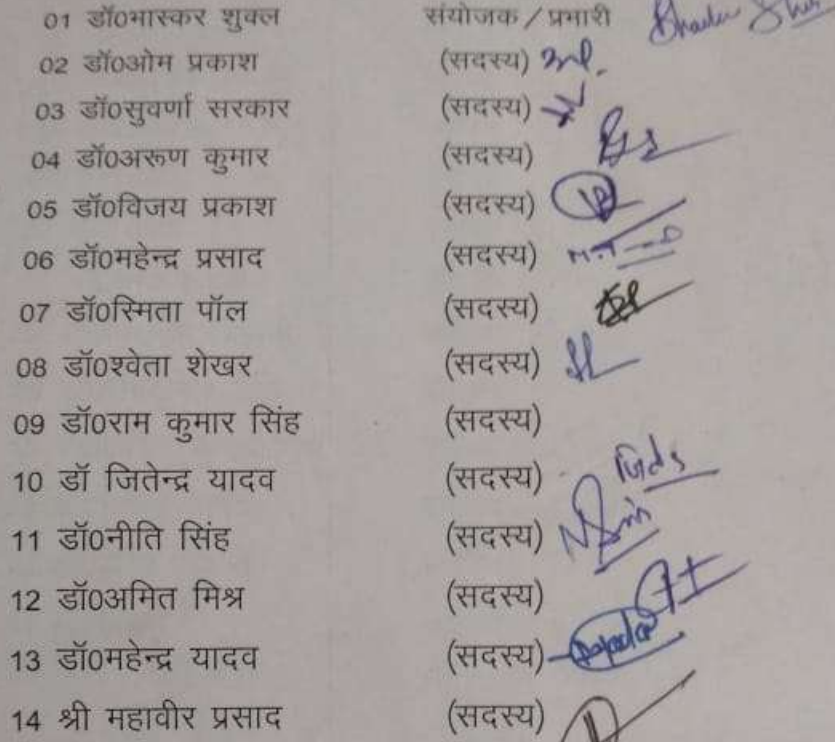 01 डॉ0भास्कर शुक्ल संयोजक / प्रभारी
02 डॉ0ओम प्रकाश (सदस्य)
03 डॉ0सुवर्णा सरकार (सदस्य)
04 डॉ0अरूण कुमार (सदस्य)
05 डॉ0विजय प्रकाश (सदस्य)
06 डॉ0महेन्द्र प्रसाद (सदस्य)
07 डॉ0स्मिता पॉल (सदस्य)
08 डॉ0श्वेता शेखर (सदस्य)
09 डॉ0राम कुमार सिंह (सदस्य)
10 डॉ जितेन्द्र यादव (सदस्य)
11 डॉ0नीति सिंह (सदस्य)
12 डॉ0अमित मिश्र (सदस्य)
13 डॉ0महेन्द्र यादव (सदस्य)
14 श्री महावीर प्रसाद (सदस्य)